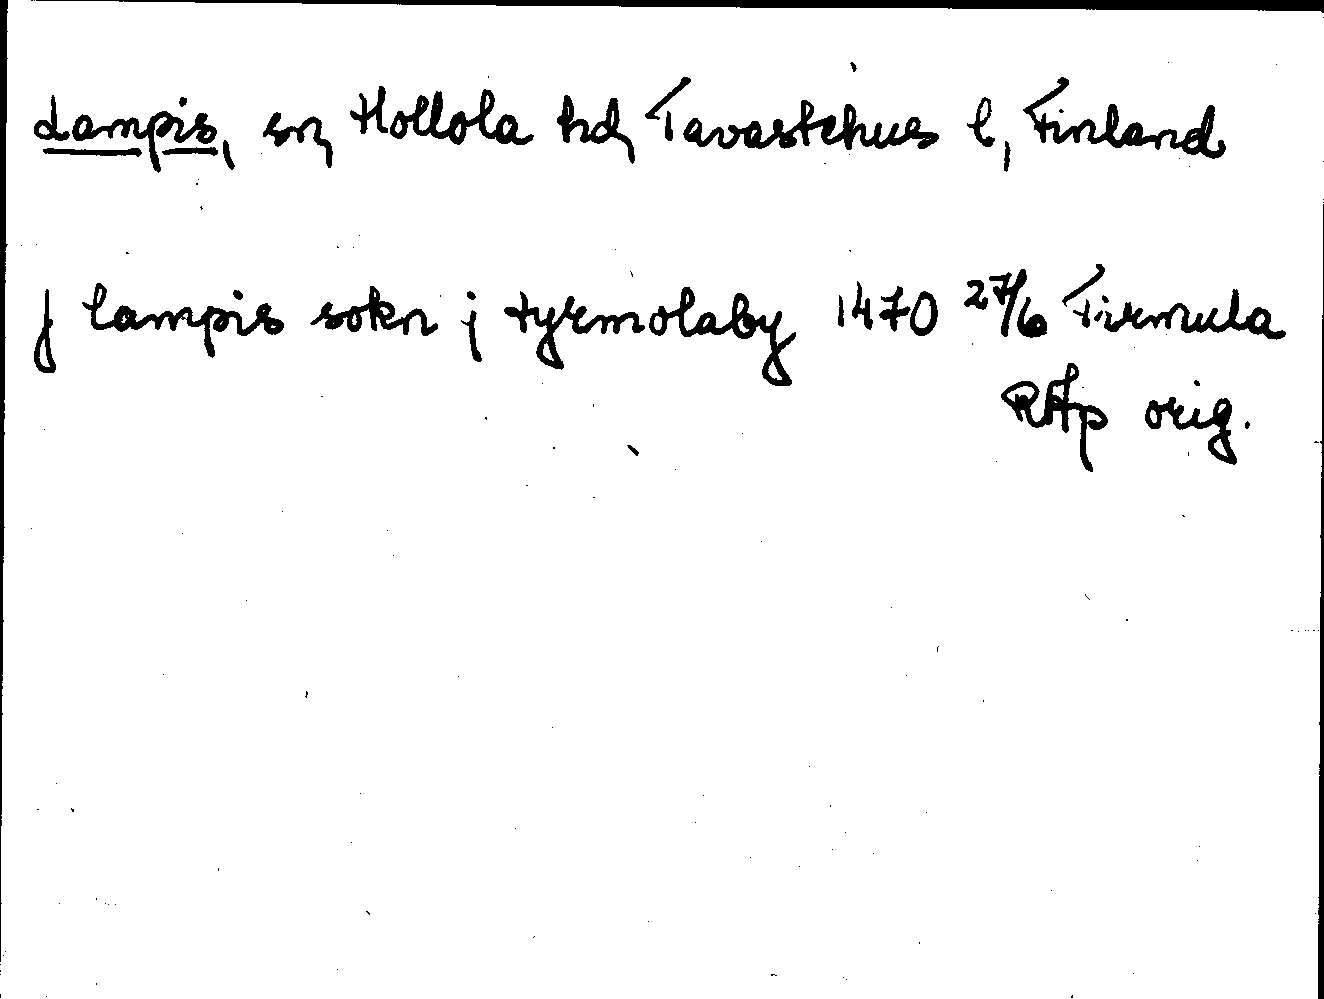 Lampis, sn, Hollola hd, Tavastehus l, Finland
j lampis sokn j tyrmolaby 1470 27/6 Tirmula
RAp orig.